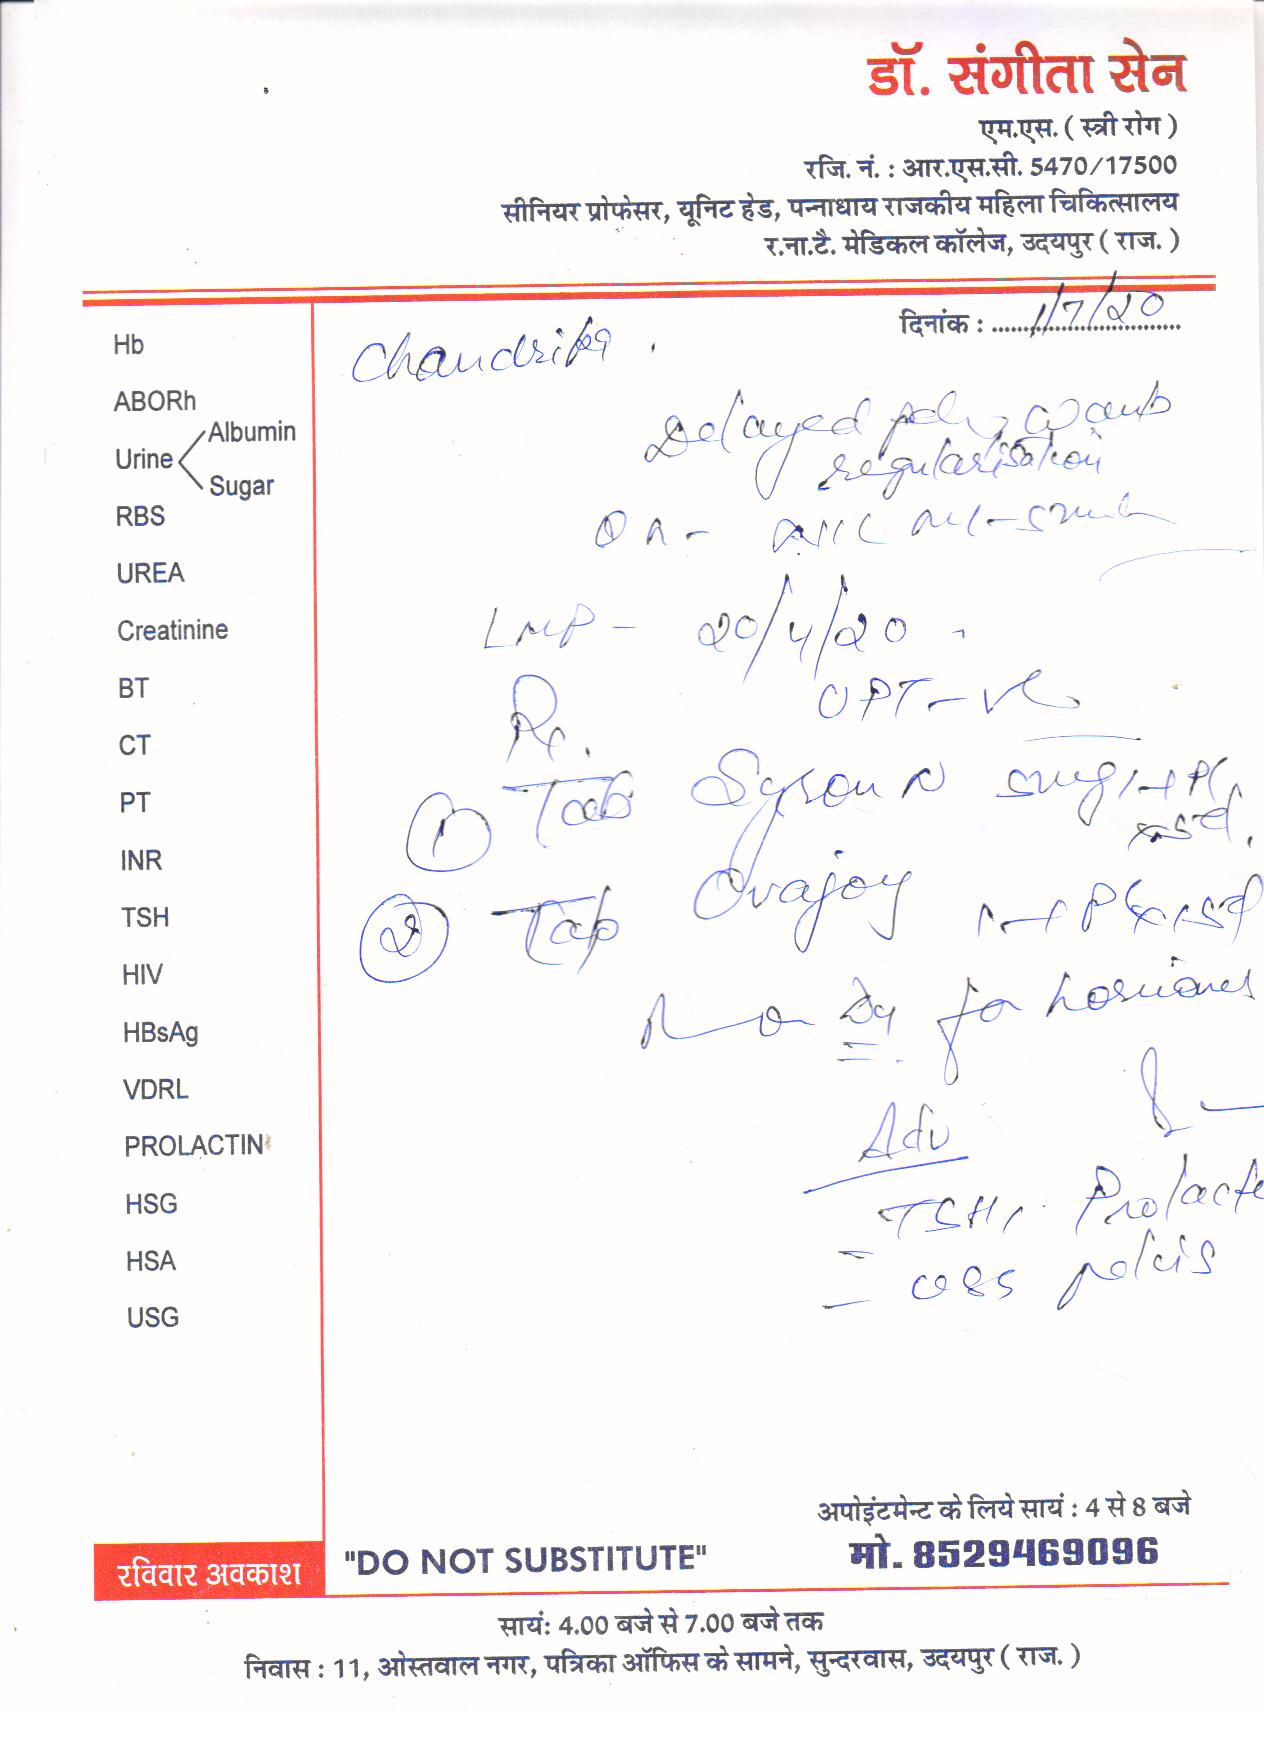 डॉ. संगीता सेन
एम.एस. ( स्त्री रोग )
रजि. नं. : आर.एस.सी. 5470/17500
सीनियर प्रोफेसर, यूनिट हेड, पन्नाधाय राजकीय महिला चिकित्सालय
र.ना.टै. मेडिकल कॉलेज, उदयपुर ( राज. )
दिनांक : 1/7/20
Chandrika
Hb
ABORh
Urine Albumin
Sugar
RBS
UREA
Creatinine
BT
CT
PT
INR
TSH
HIV
HBsAg
VDRL
PROLACTIN
HSG
HSA
USG
Delayed
regularisation
LMP - 20/4/20
UPT -ve
Rx.
1 Tab 5mg
2 Tab Ovajoy
for hormones
Adv
TSH,
pelvis
अपोइंटमेन्ट के लिये सायं : 4 से 8 बजे
रविवार अवकाश "DO NOT SUBSTITUTE" मो. 8529469096
सायं: 4.00 बजे से 7.00 बजे तक
निवास : 11, ओस्तवाल नगर, पत्रिका ऑफिस के सामने, सुन्दरवास, उदयपुर ( राज. )